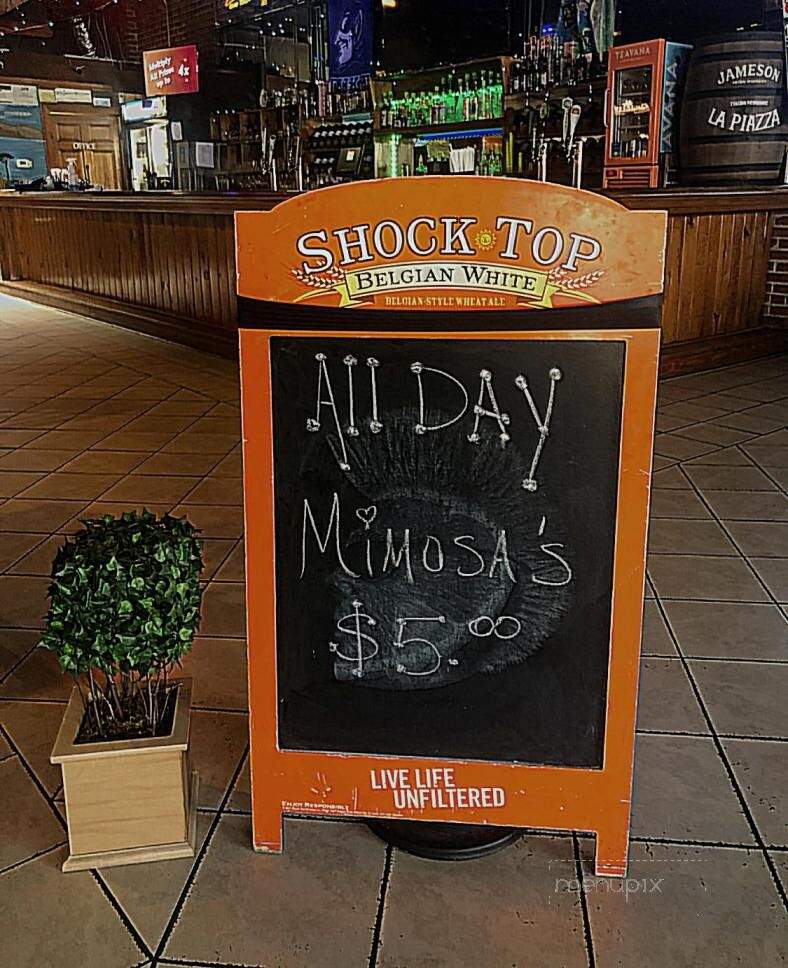 Multiply
All Prizes
up to 4x
OFFICE
TEAVANA
JAMESON
LA PIAZZA
SHOCK TOP
BELGIAN WHITE
BELGIAN-STYLE WHEAT ALE
All DAY
MiMOSA'S
$5.00
LIVE LIFE
UNFILTERED
ENJOY RESPONSIBLY
menupix